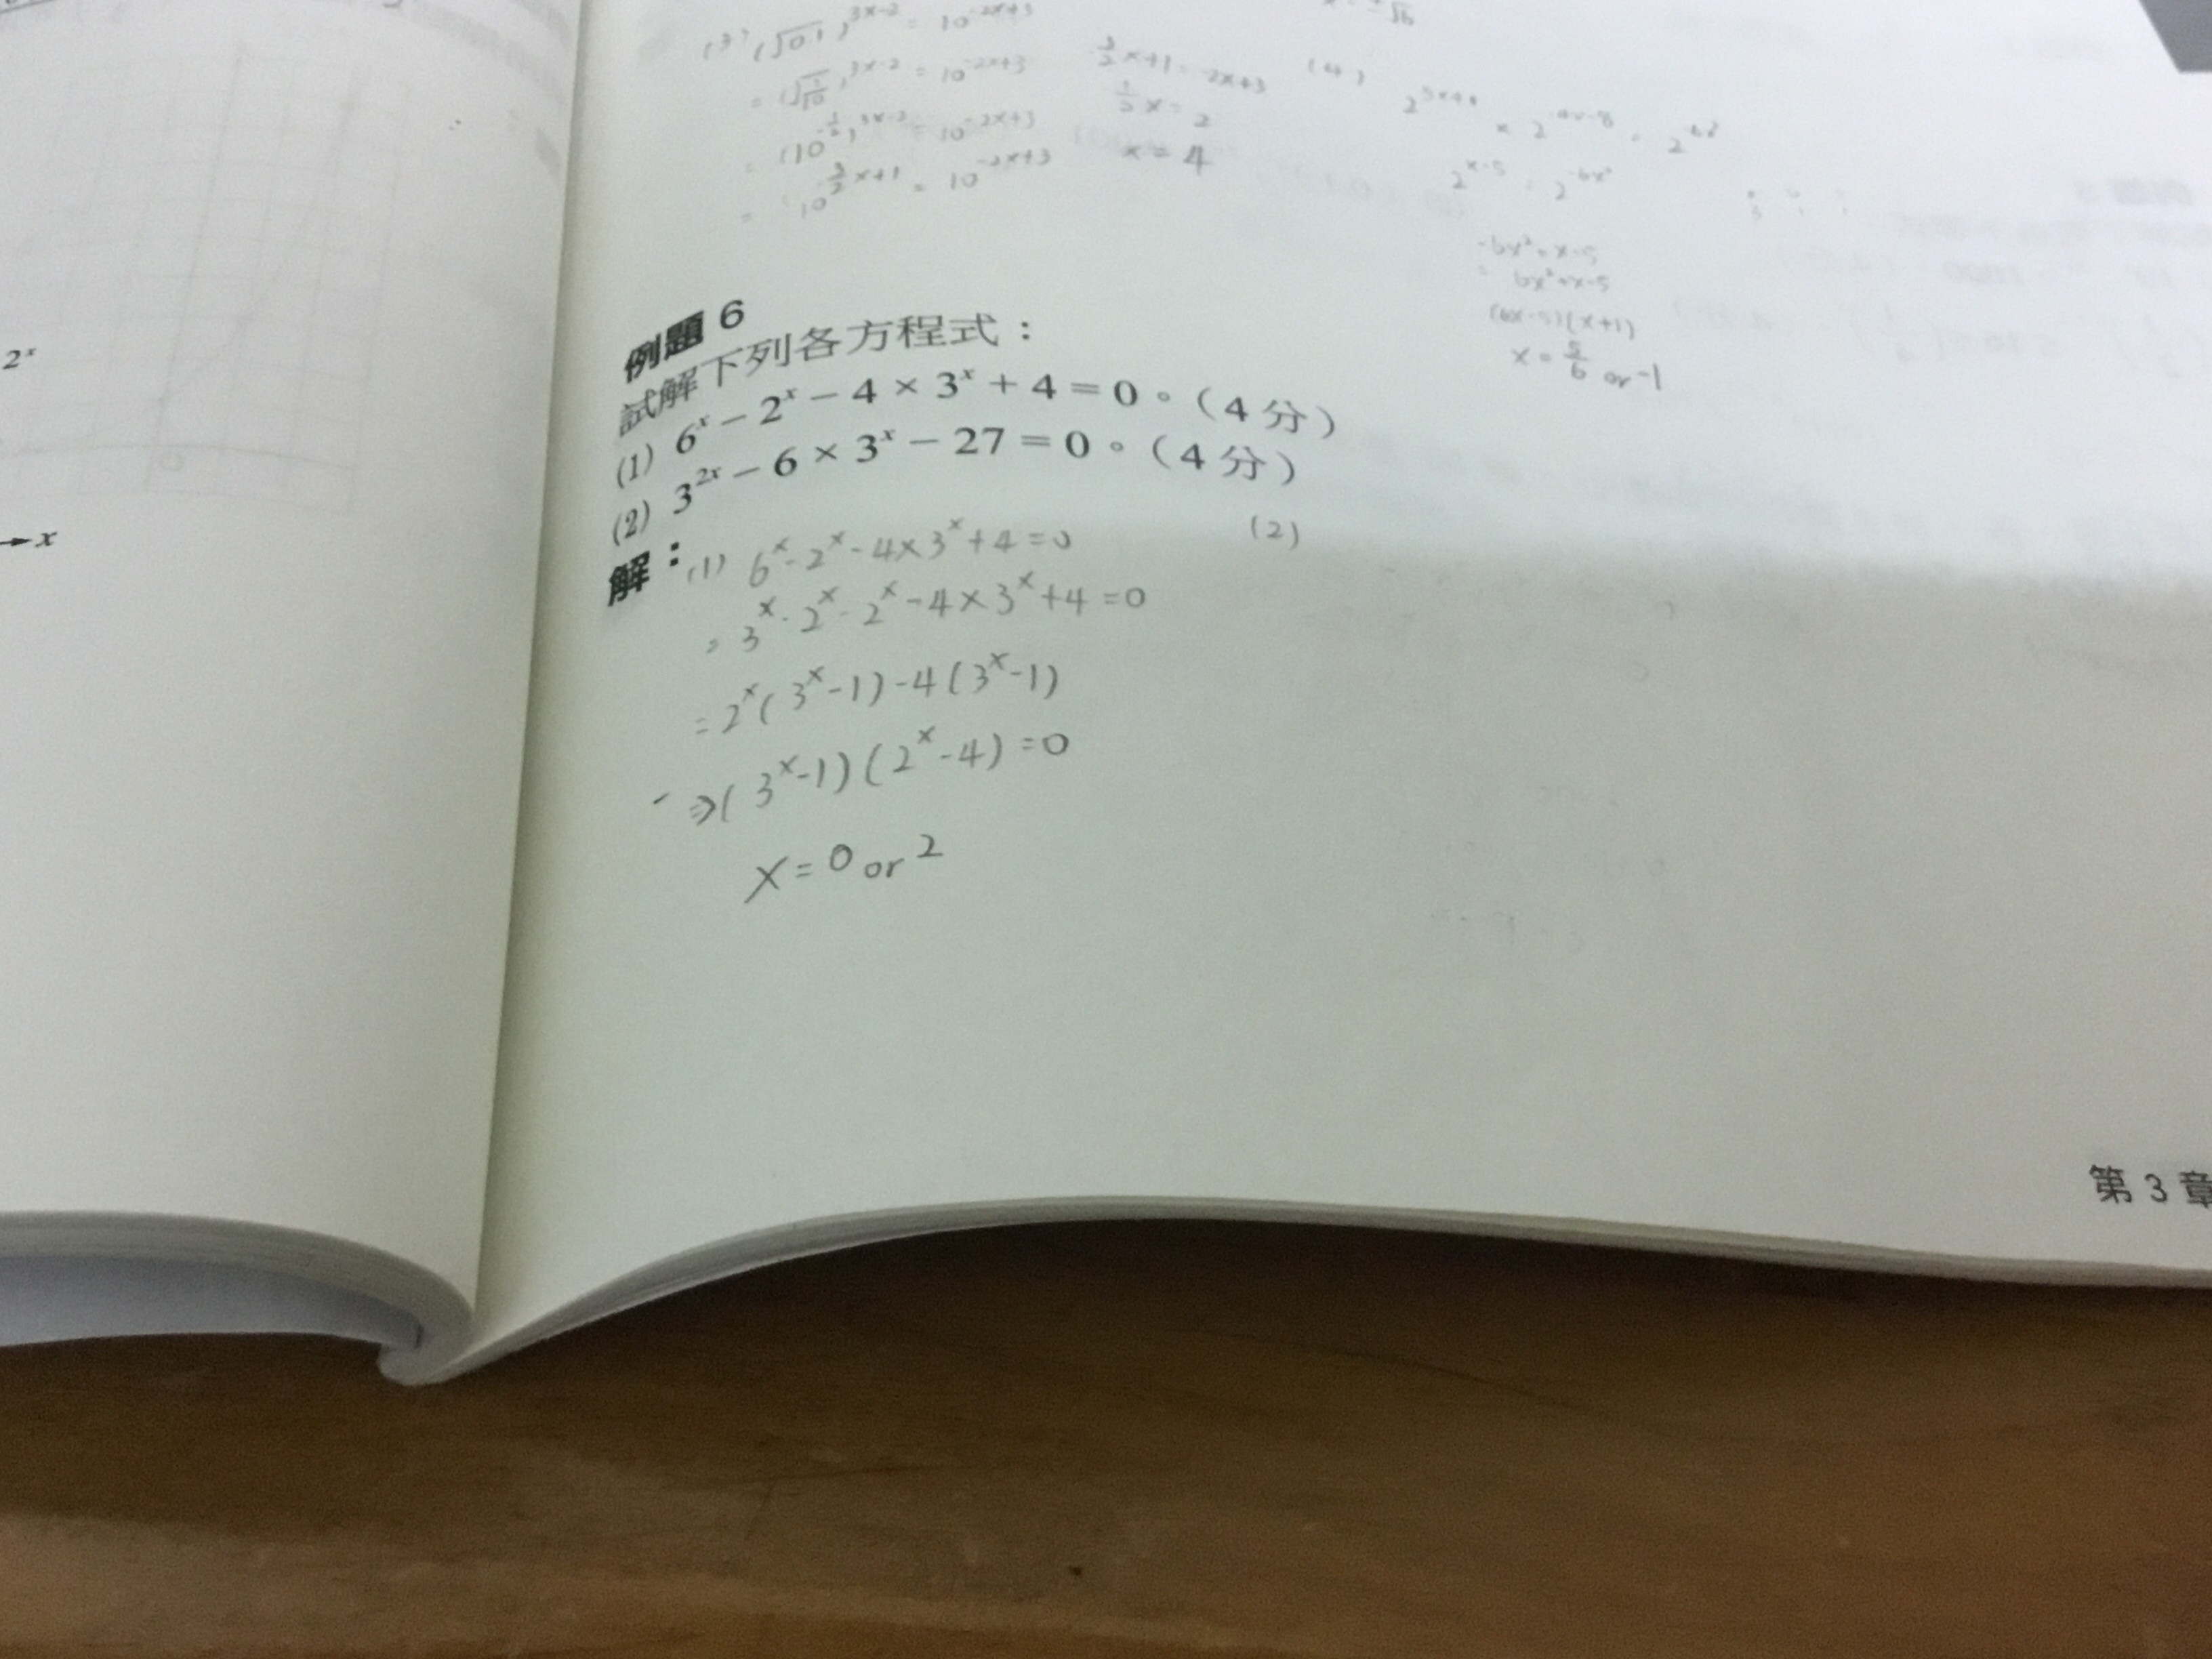 2ˣ
→x
(3) (√0.1)^{3x-2} = 10^{-2x+3}
= (√(1/10))^{3x-2} = 10^{-2x+3}
= (10^{-1/2})^{3x-2} = 10^{-2x+3}
= 10^{-3/2x+1} = 10^{-2x+3}
-3/2x+1 = -2x+3
1/2x = 2
x = 4
(4)
2^{x-5} = 2^{-6x²}
6x²+x-5
(6x-5)(x+1)
x = 5/6 or -1
例題 6
試解下列各方程式：
(1) 6ˣ − 2ˣ − 4 × 3ˣ + 4 = 0。(4 分)
(2) 3²ˣ − 6 × 3ˣ − 27 = 0。(4 分)
解：(1) 6ˣ-2ˣ-4×3ˣ+4=0
= 3ˣ·2ˣ-2ˣ-4×3ˣ+4=0
= 2ˣ(3ˣ-1)-4(3ˣ-1)
⇒(3ˣ-1)(2ˣ-4)=0
x=0 or 2
(2)
第 3 章